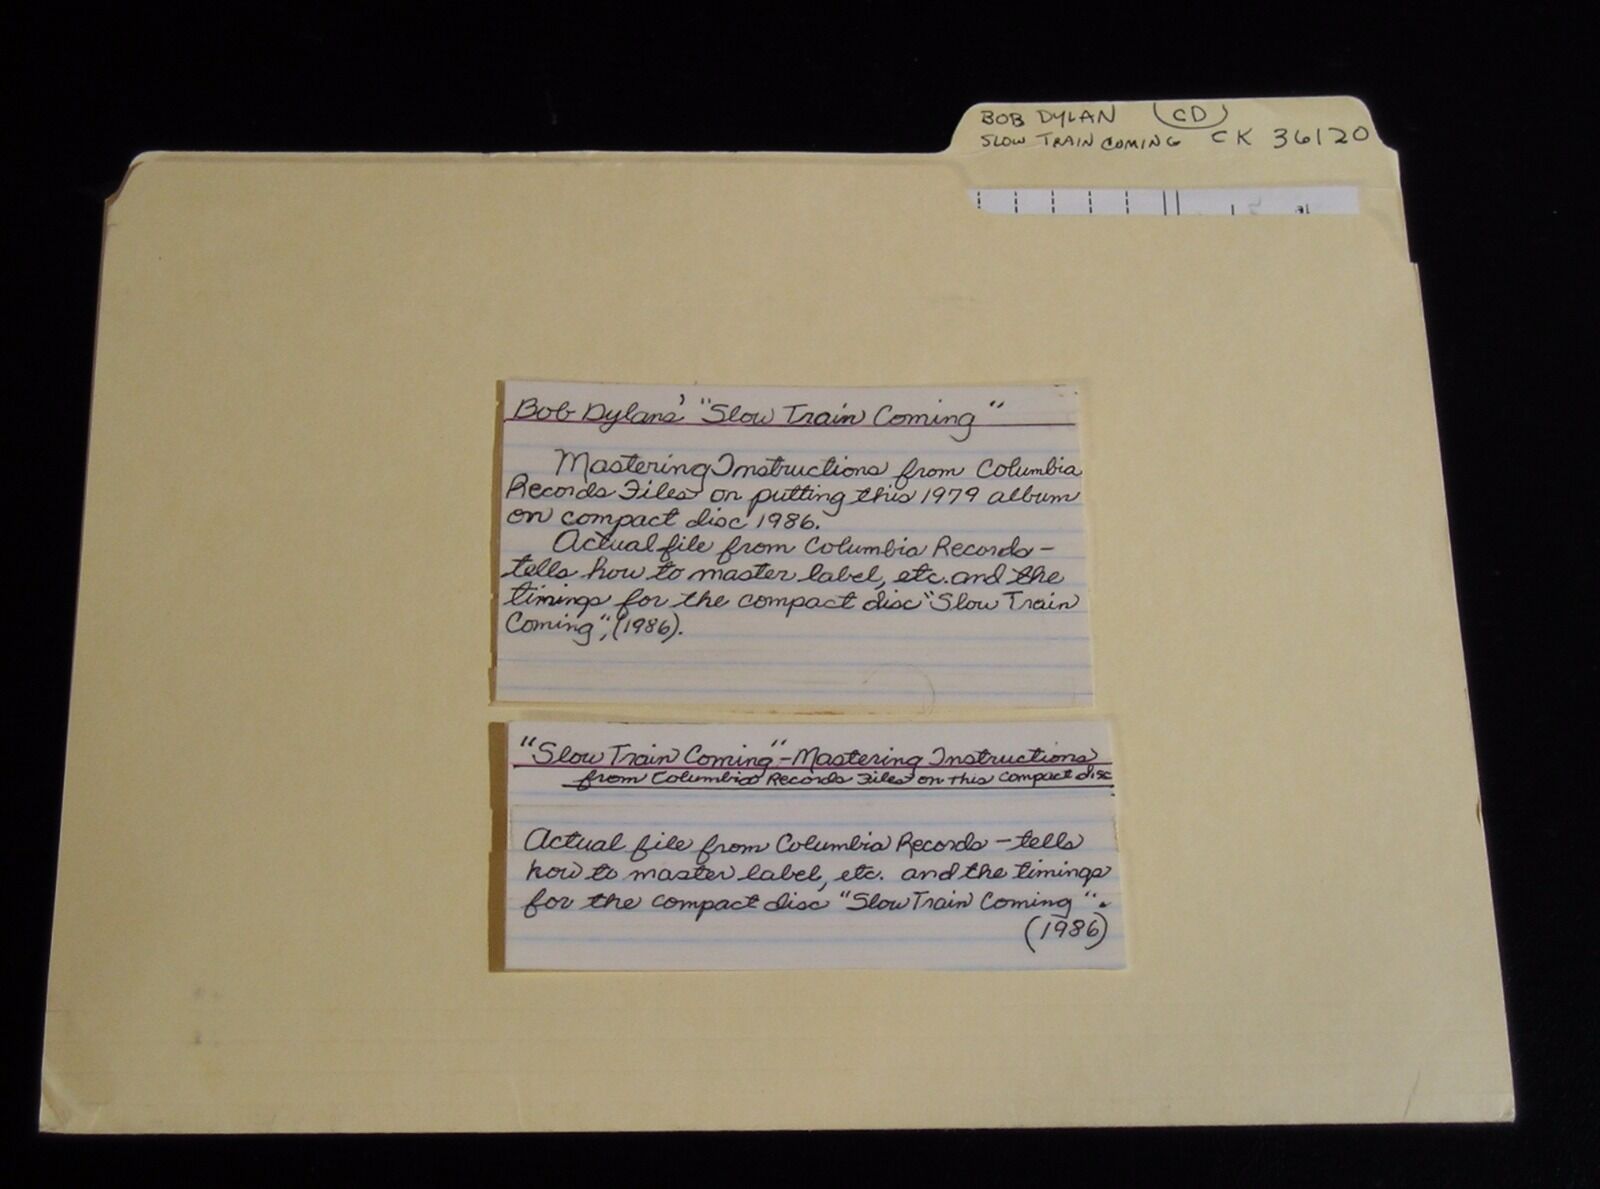 BOB DYLAN (CD)
SLOW TRAIN COMING CK 36120
Bob Dylans' "Slow Train Coming"
Mastering Instructions from Columbia
Records Files on putting this 1979 album
on compact disc 1986.
Actual file from Columbia Records -
tells how to master label, etc. and the
timings for the compact disc "Slow Train
Coming", (1986).
"Slow Train Coming" - Mastering Instructions
from Columbia Records Files on this compact disc
Actual file from Columbia Records - tells
how to master label, etc. and the timings
for the compact disc "Slow Train Coming".
(1986)